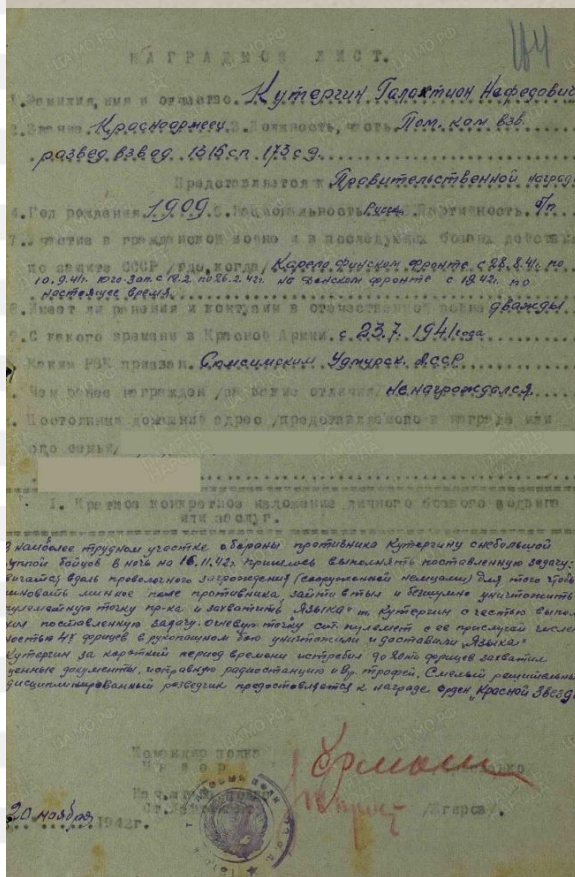 144
НАГРАДНОЙ ЛИСТ.
1. Фамилия, имя и отчество. Кутергин Галактион Нафедович
2. Звание. Красноармеец 3. Должность, часть. Пом. ком. взв.
развед. взвод. 1315 сп. 173 сд.
Представляется к Правительственной награде
4. Год рождения. 1909. 5. Национальность Русск. 6. Партийность. б/п
7. Участие в гражданской войне и в последующих боевых действиях
по защите СССР /где, когда/ Карело Финском фронте с 28.8.41 по
10.9.41г. Юго-Зап. с 12.2. по 26.2.42г. на Донском фронте с 1.9.42г. по
настоящее время.
8. Имеет ли ранения и контузии в отечественной войне дважды
9. С какого времени в Красной Армии. с 23.7.1941 года
Каким РВК призван. Сюмсимским Удмурск. АССР
Чем ранее награжден /за какие отличия/ Не награждался
Постоянный домашний адрес /представляемого к награде или
его семьи/
1. Краткое конкретное изложение личного боевого подвига
или заслуг.
наиболее трудном участке обороны противника Кутергину с небольшой
группой бойцов в ночь на 16.11.42г. пришлось выполнять поставленную задачу:
вдоль проволочного загрождения (сооруженной немцами) для того чтобы
миновать минное поле противника, зайти в тыл и бесшумно уничтожить
пулеметную точку пр-ка и захватить "Языка" т. Кутергин с честью выпол
поставленную задачу. Огневую точку ст. пулемет с ее прислугой числен
ностью 4х фрицев в рукопашном бою уничтожили и доставили "Языка"
Кутергин за короткий период времени истребил до 20ти фрицев захватил
ценные документы, исправную радиостанцию и др. трофеи. Смелый решительный
дисциплинированный разведчик предоставляется к награде орден "Красной Звезды
Командир полка
Майор
Нач. штаба полка
Ст.
20 ноября 1942г.